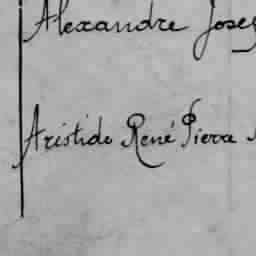 Alexandre Jose
Aristide René Pierre